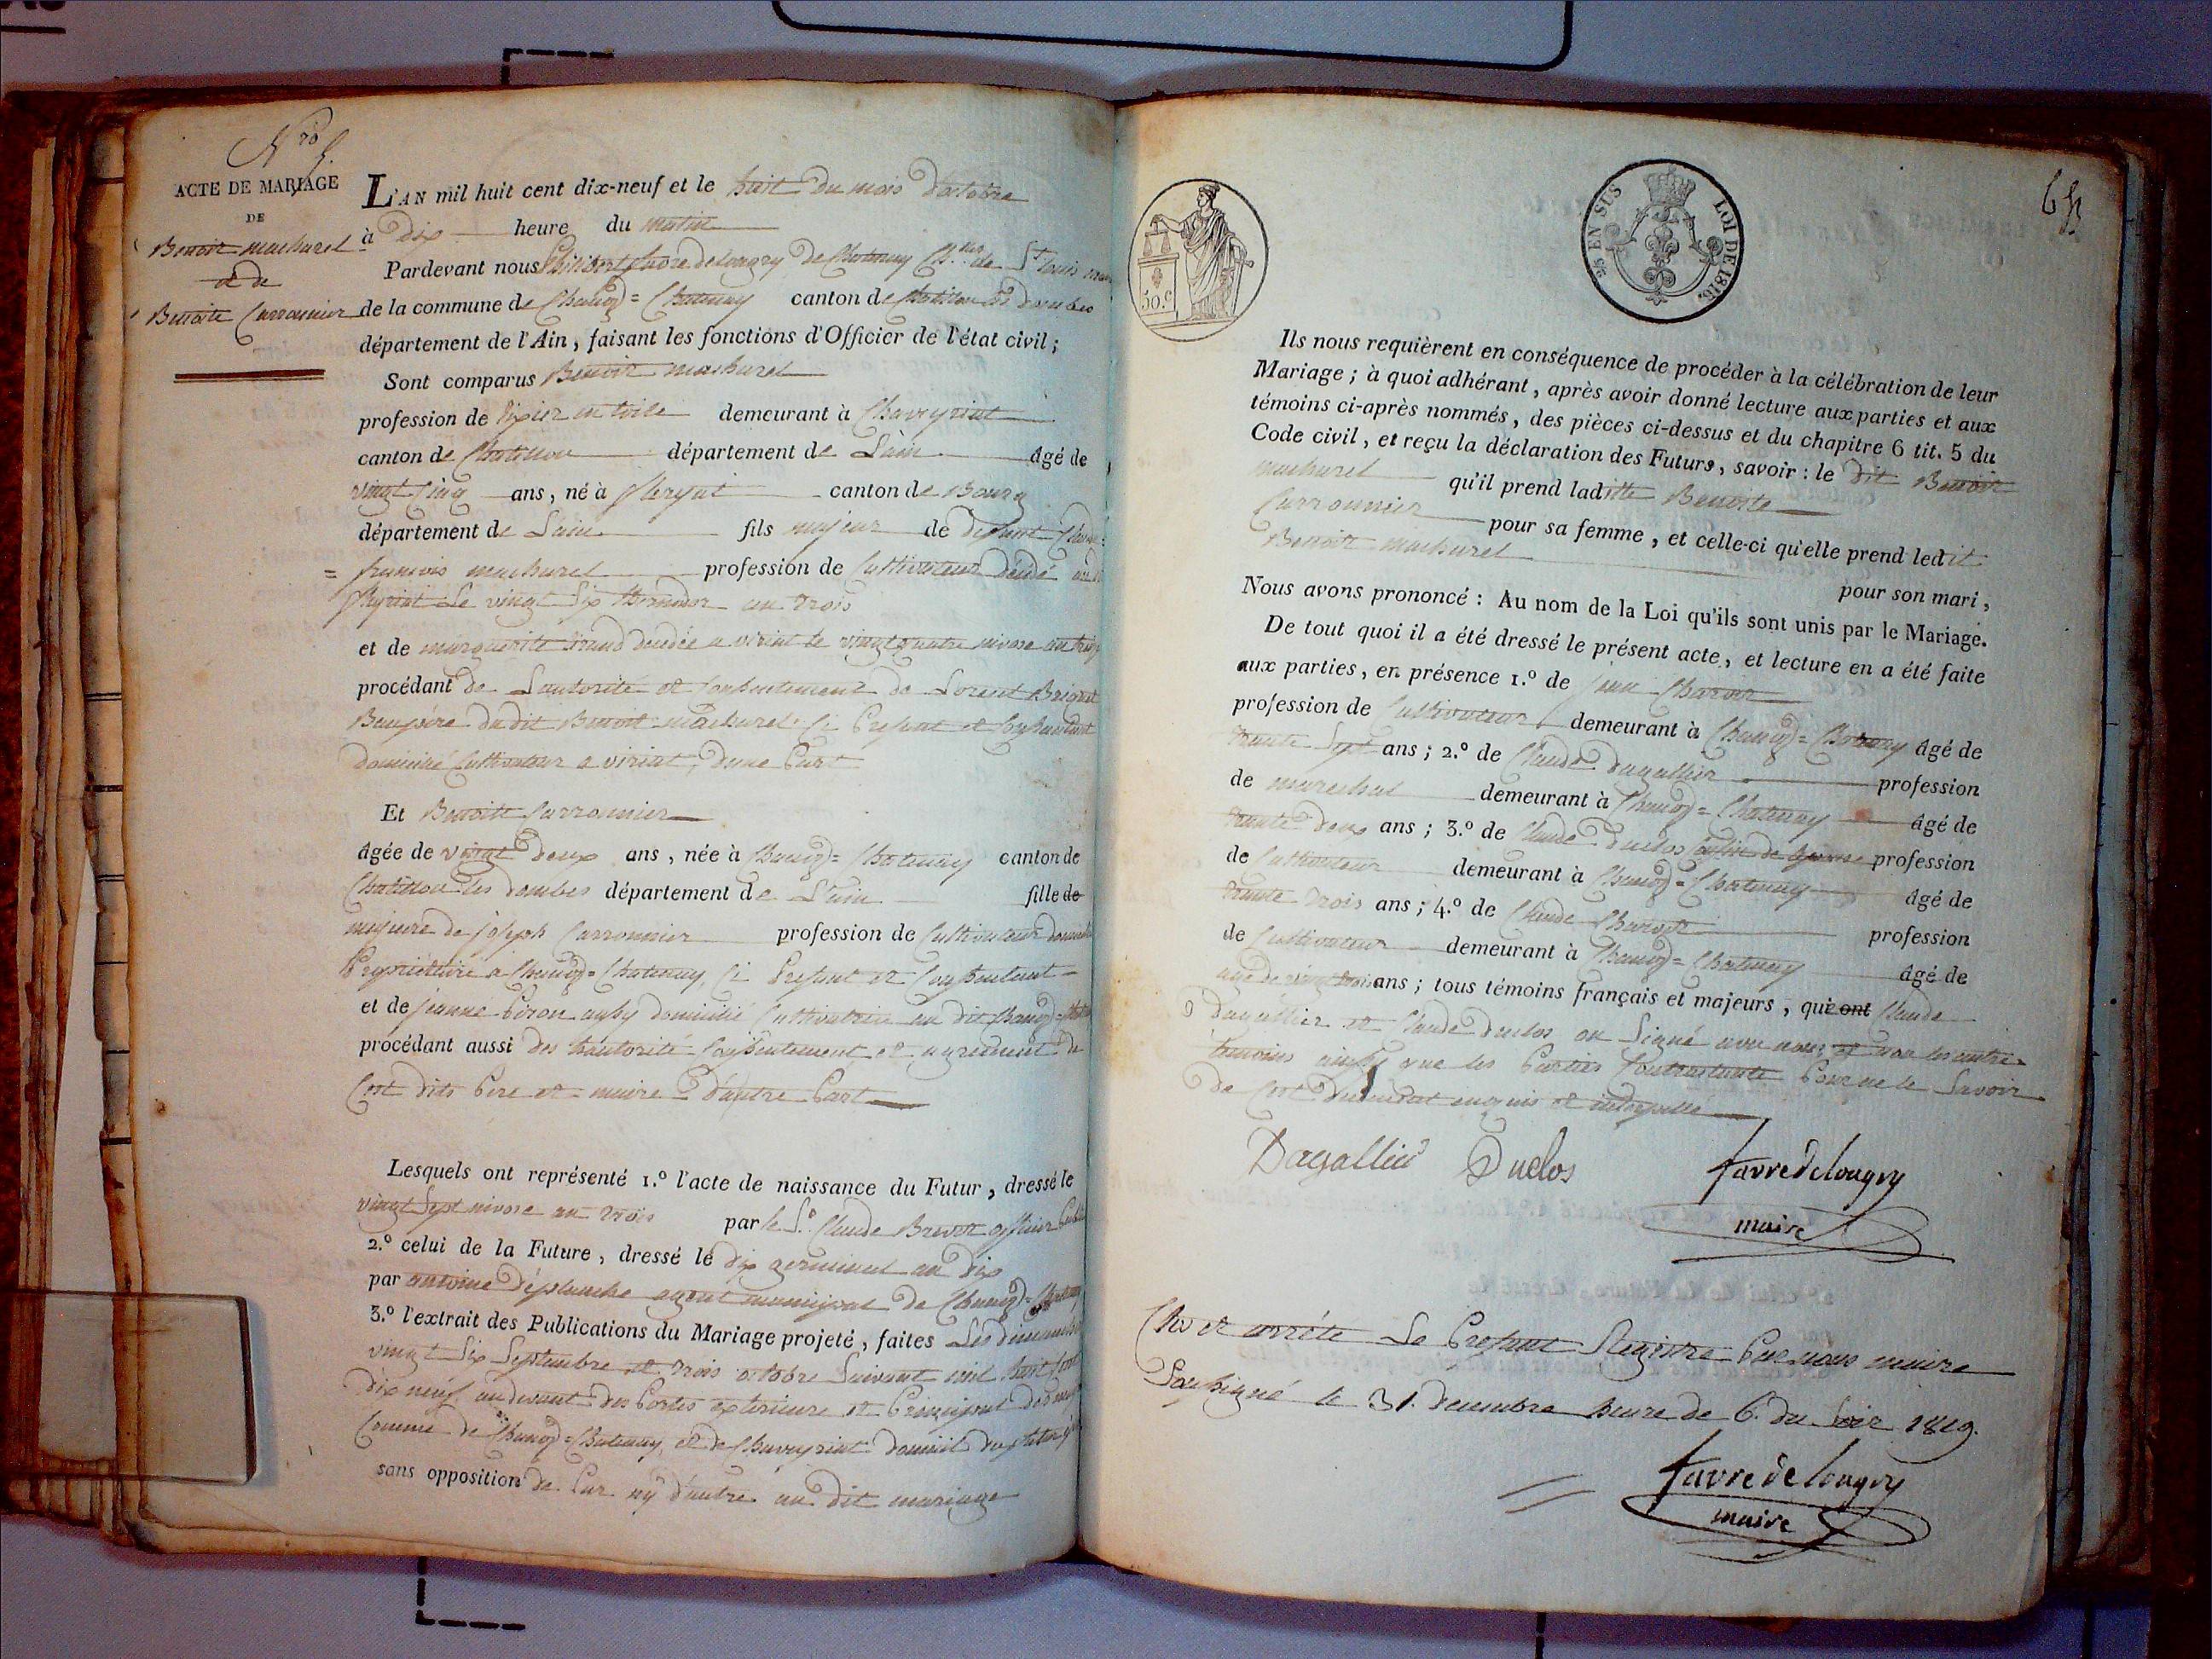 Nro 5.
ACTE DE MARIAGE
DE
Benoit machurel
et de
Benoite Carronnier
L'AN mil huit cent dix-neuf et le huit du mois d'octobre
à dix heure du matin
Pardevant nous Philibert favre de longry de Chatenay Ch.er de St Louis maire
de la commune de Chanoz=Chatenay canton de Chatillon les dombes
département de l'Ain, faisant les fonctions d'Officier de l'état civil;
Sont comparus Benoit machurel
profession de tixier en toile demeurant à Chaveyriat
canton de Chatillon département de L'ain âgé de
vingt cinq ans, né à canton de Bourg
département de L'ain fils majeur de défunt Claude
= francois machurel profession de Cultivateur décédé
le vingt six thermidor an trois
et de marguerite décédée a viriat le vingt quatre nivose an
procédant de L'autorité et Consentement de Lorent
Beaupére du dit Benoit machurel Ci Present et Consentant
domicilié Cultivateur a viriat, d'une Part
Et Benoite Carronnier
âgée de vingt deux ans, née à Chanoz=Chatenay canton de
Chatillon les dombes département de L'ain fille de
majeure de joseph Carronnier profession de Cultivateur
Propriétaire a Chanoz=Chatenay, Ci Present et Consentant=
et de jeanne Peron aussy domicilié Cultivatrice au dit Chanoz=
procédant aussi des Consentement et agrement de
Cest dits Pere et maire D'autre Part
Lesquels ont représenté 1.º l'acte de naissance du Futur, dressé le
vingt Sept nivose an trois par le S.r Claude Brevet officier
2.º celui de la Future, dressé le dix germinal an dix
par antoine agent municipal de Chanoz=
3.º l'extrait des Publications du Mariage projeté, faites Les dimanche
vingt Six Septembre et trois octobre Suivant mil huit Cent
dix neuf au devant des Portes exterieure et Principal
Comune de Chanoz=Chatenay et de Chaveyriat domicil du futur
sans opposition de Par ny d'autre au dit mariage
50.c
25 EN SUS LOI DE 1816.
Ils nous requièrent en conséquence de procéder à la célébration de leur
Mariage; à quoi adhérant, après avoir donné lecture aux parties et aux
témoins ci-après nommés, des pièces ci-dessus et du chapitre 6 tit. 5 du
Code civil, et reçu la déclaration des Futurs, savoir: le dit Benoit
machurel qu'il prend laditte Benoite
Carronnier pour sa femme, et celle-ci qu'elle prend ledit
Benoit machurel pour son mari,
Nous avons prononcé: Au nom de la Loi qu'ils sont unis par le Mariage.
De tout quoi il a été dressé le présent acte, et lecture en a été faite
aux parties, en présence 1.º de jean
profession de Cultivateur demeurant à Chanoz=Chatenay âgé de
trante Sept ans; 2.º de Claude dagallier profession
de marechal demeurant à Chanoz=Chatenay âgé de
trante deux ans; 3.º de Claude duclos profession
de Cultivateur demeurant à Chanoz=Chatenay âgé de
trante trois ans; 4.º de Claude profession
de Cultivateur demeurant à Chanoz=Chatenay âgé de
ans; tous témoins français et majeurs, qui ont Claude
dagallier et Claude duclos on Signé avec nous et non les autre
temoins ainsy que les Parties Contractante Pour ne le Savoir
de enquis et interpellé
Dagallier Duclos favredelongry
maire
Clos et arrété Le Present Registre Par nous maire
Soussigné le 31. decembre heure de 6. du Soir 1819.
favre de longry
maire